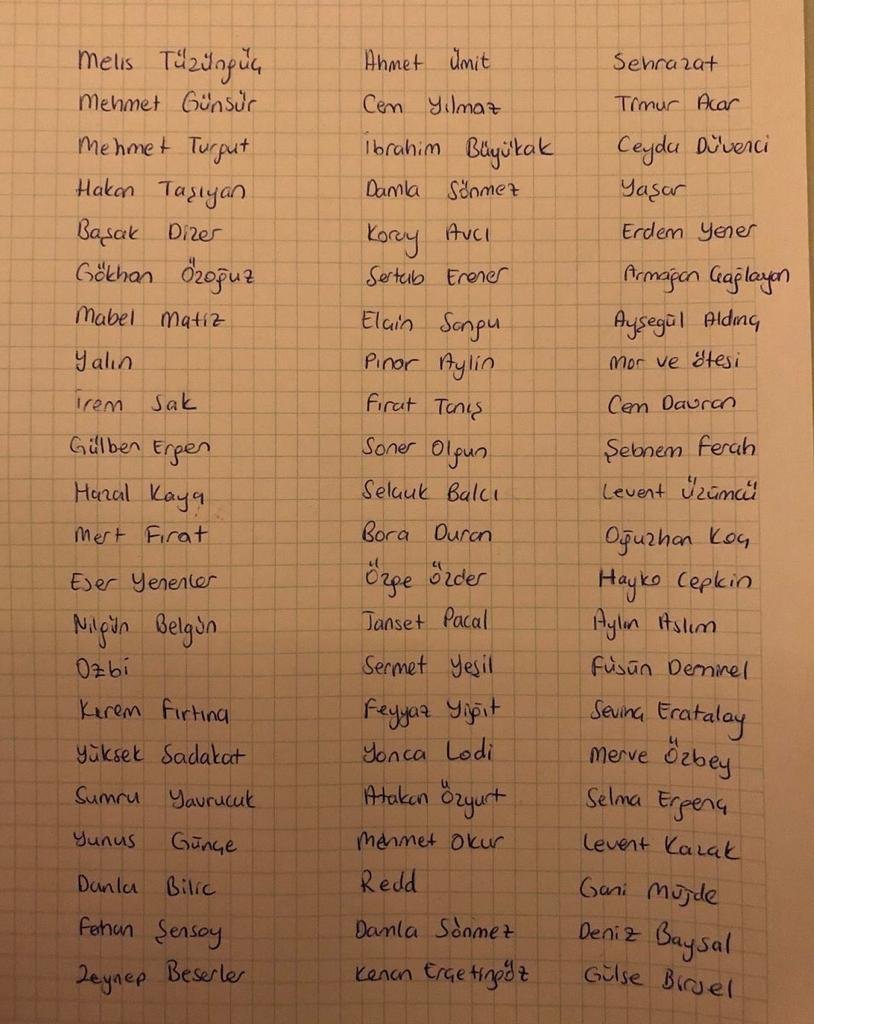 Melis Tüzüngüç
Mehmet Günsür
Mehmet Turgut
Hakan Taşıyan
Başak Dizer
Gökhan Özoğuz
Mabel Matiz
Yalın
İrem Sak
Gülben Ergen
Hazal Kaya
Mert Fırat
Eser Yenenler
Nilgün Belgün
Ozbi
Kerem Fırtına
Yüksek Sadakat
Sumru Yavrucuk
Yunus Günçe
Danla Bilic
Ferhan Şensoy
Zeynep Beserler
Ahmet Ümit
Cem Yılmaz
İbrahim Büyükak
Damla Sönmez
Koray Avcı
Sertab Erener
Elçin Sangu
Pınar Aylin
Fırat Tanış
Soner Olgun
Selçuk Balcı
Bora Duran
Özge Özder
Tanset Pacal
Sermet Yeşil
Feyyaz Yiğit
Yonca Lodi
Atakan Özyurt
Mehmet Okur
Redd
Damla Sönmez
Kenan Ergetingöz
Sehrazat
Timur Acar
Ceyda Düvenci
Yaşar
Erdem Yener
Armağan Çağlayan
Ayşegül Aldinç
Mor ve ötesi
Cem Davran
Şebnem Ferah
Levent Üzümcü
Oğuzhan Koç
Hayko Cepkin
Aylin Aslım
Füsün Demirel
Sevinç Eratalay
Merve Özbey
Selma Ergenç
Levent Kazak
Gani Müjde
Deniz Baysal
Gülse Birsel